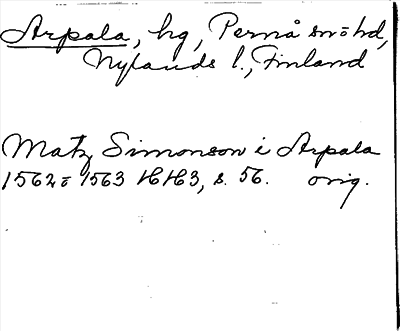 Arpala, hg, Pernå sn o hd,
Nylands l., Finland
Matz Simonson i Arpala
1562 o 1563 HH3, s. 56. orig.